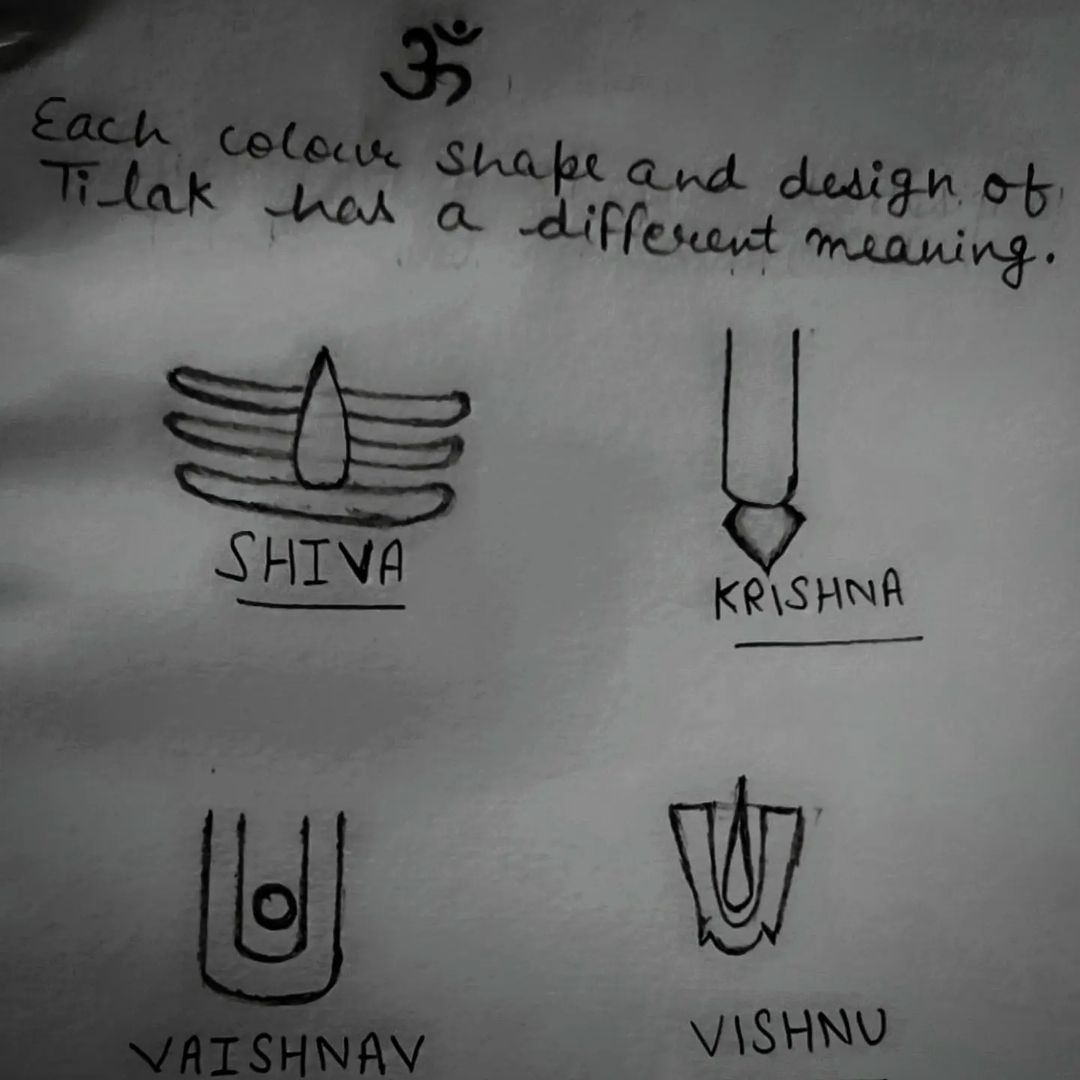 ॐ
Each colour shape and design of
Tilak has a different meaning.
SHIVA
KRISHNA
VAISHNAV
VISHNU